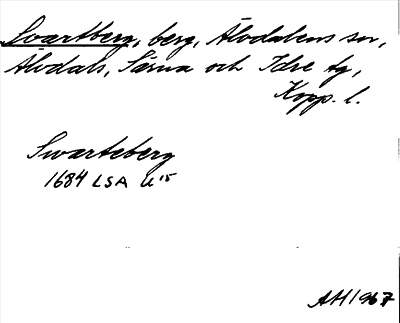 Svartberg, berg, Älvdalens sn,
Älvdals, Särna och Idre tg,
Kopp. l.
Swarteberg
1684 LSA U 15
AH 1967